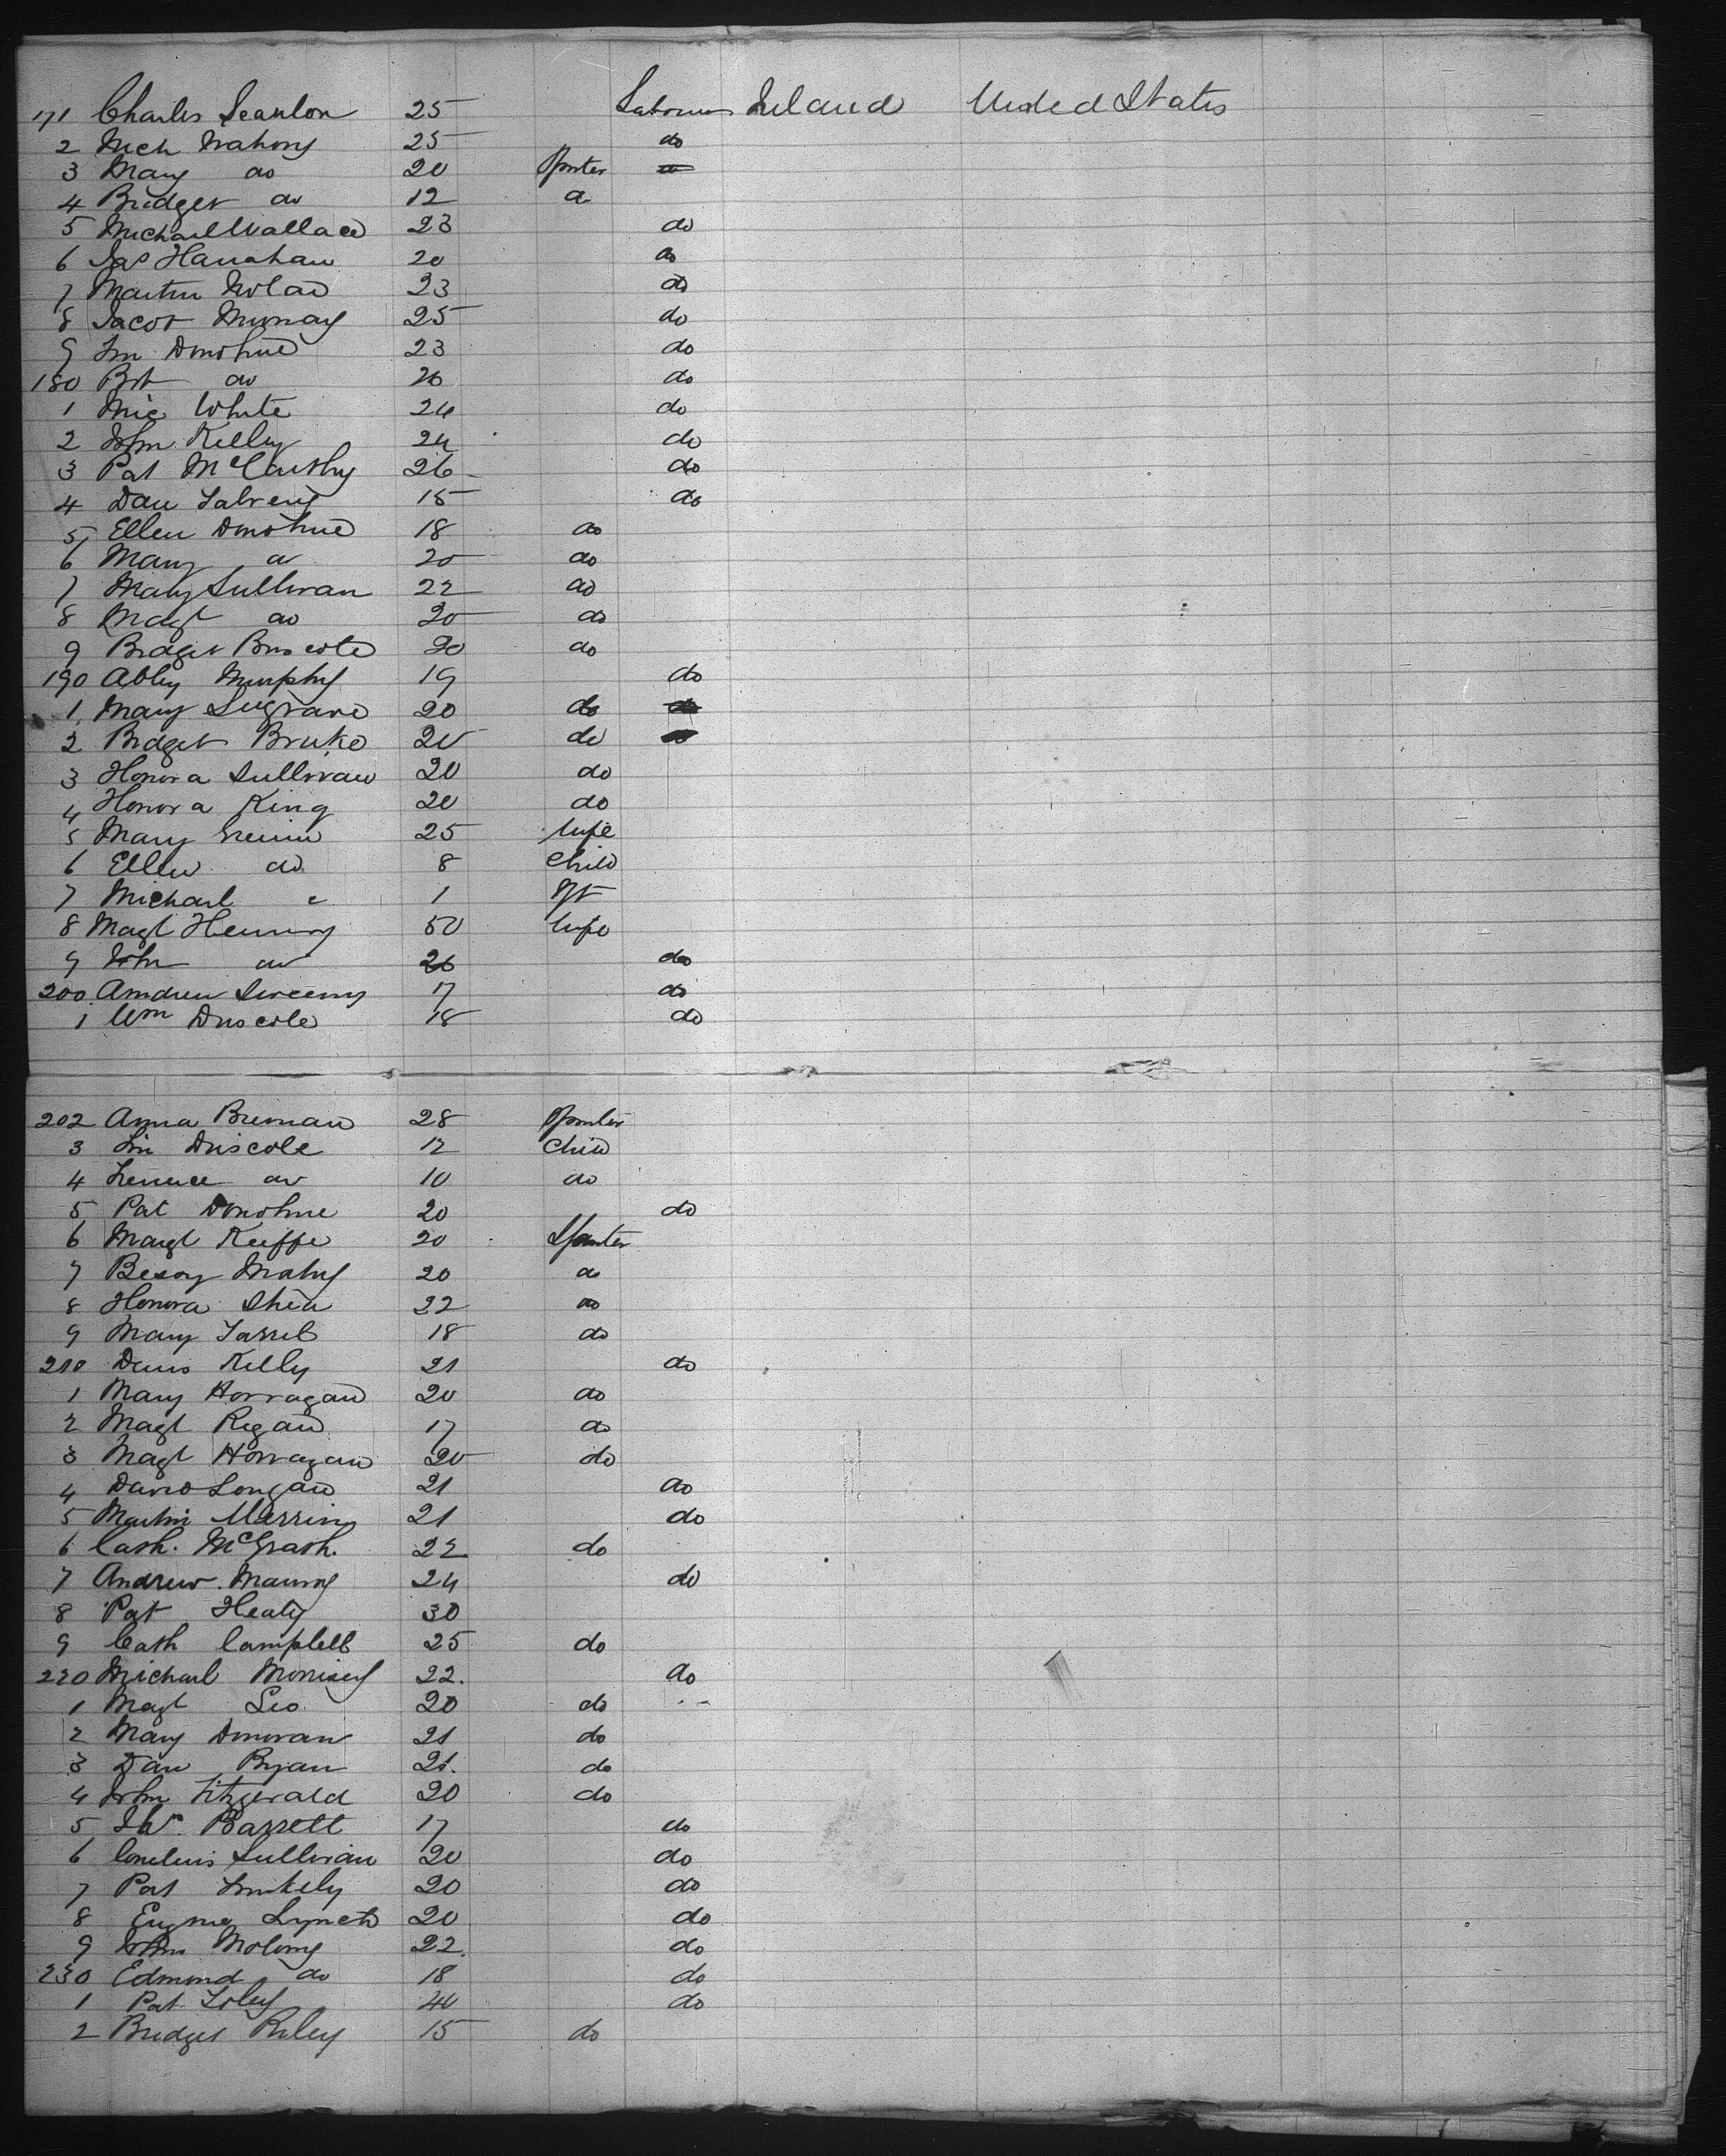 171 Charles Scanlon 25 Laborer Ireland United States
2 Mich Mahony 25 do
3 Mary do 20 Spinster
4 Bridget do 12 do
5 Michael Wallace 23 do
6 Jas Hanahan 20 do
7 Martin Nolan 23 do
8 Jacob Murray 25 do
9 Donohue 23 do
180 do 26 do
1 Mic White 24 do
2 John Kelly 24 do
3 Pat McCarthy 26 do
4 Dan 15 do
5 Ellen Donohue 18 do
6 Mary do 20 do
7 Mary Sullivan 22 do
8 Magt do 20 do
9 Bridget 20 do
190 Abby Murphy 19 do
1 Mary 20 do
2 Bridget 20 do
3 Honora Sullivan 20 do
4 Honora King 20 do
5 Mary 25 Wife
6 Ellen do 8 Child
7 Michael 1
8 Magt 50 Wife
9 John do 26 do
200 Andrew Sweeny 17 do
1 Wm Driscole 18 do
202 Anna Brennan 28 Spinster
3 Driscole 12 Child
4 do 10 do
5 Pat Donohue 20 do
6 Margt Keiffe 20 Spinster
7 Bessy 20 do
8 Honora Shea 22 do
9 Mary 18 do
210 Denis Kelly 21 do
1 Mary Horragan 20 do
2 Magt Regan 17 do
3 Magt Horragan 20 do
4 David Longan 21 do
5 Martin 21 do
6 Cath. McGrath. 22 do
7 Andrew 24 do
8 Pat Healy 30
9 Cath Campbell 25 do
220 Michael 22. do
1 Magt 20 do
2 Mary Donovan 21 do
3 Dan Ryan 21. do
4 John Fitzgerald 20 do
5 Barrett 17 do
6 Cornelius Sullivan 20 do
7 Pat 20 do
8 Eugene Lynch 20 do
9 John Molony 22. do
230 Edmond do 18 do
1 Pat Foley 40 do
2 Bridget Riley 15 do